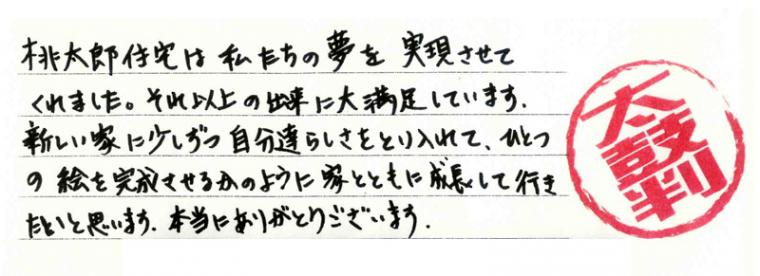 桃太郎住宅は私たちの夢を実現させて
くれました。それ以上の出来に大満足しています.
新しい家に少しずつ自分達らしさをとり入れて、ひとつ
の絵を完成させるかのように家とともに成長して行き
たいと思います. 本当にありがとうございます.
太鼓判